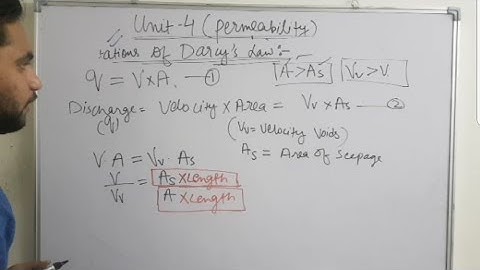 Unit-4 (permeability)
rations of Darcy's Law:-
q = V×A. — ①
A > As
Vv > V.
Discharge = Velocity × Area = Vv × As — ②
(q)
(Vv = Velocity Voids)
As = Area of Seepage
V A = Vv. As
V/Vv = As × Length / A × Length